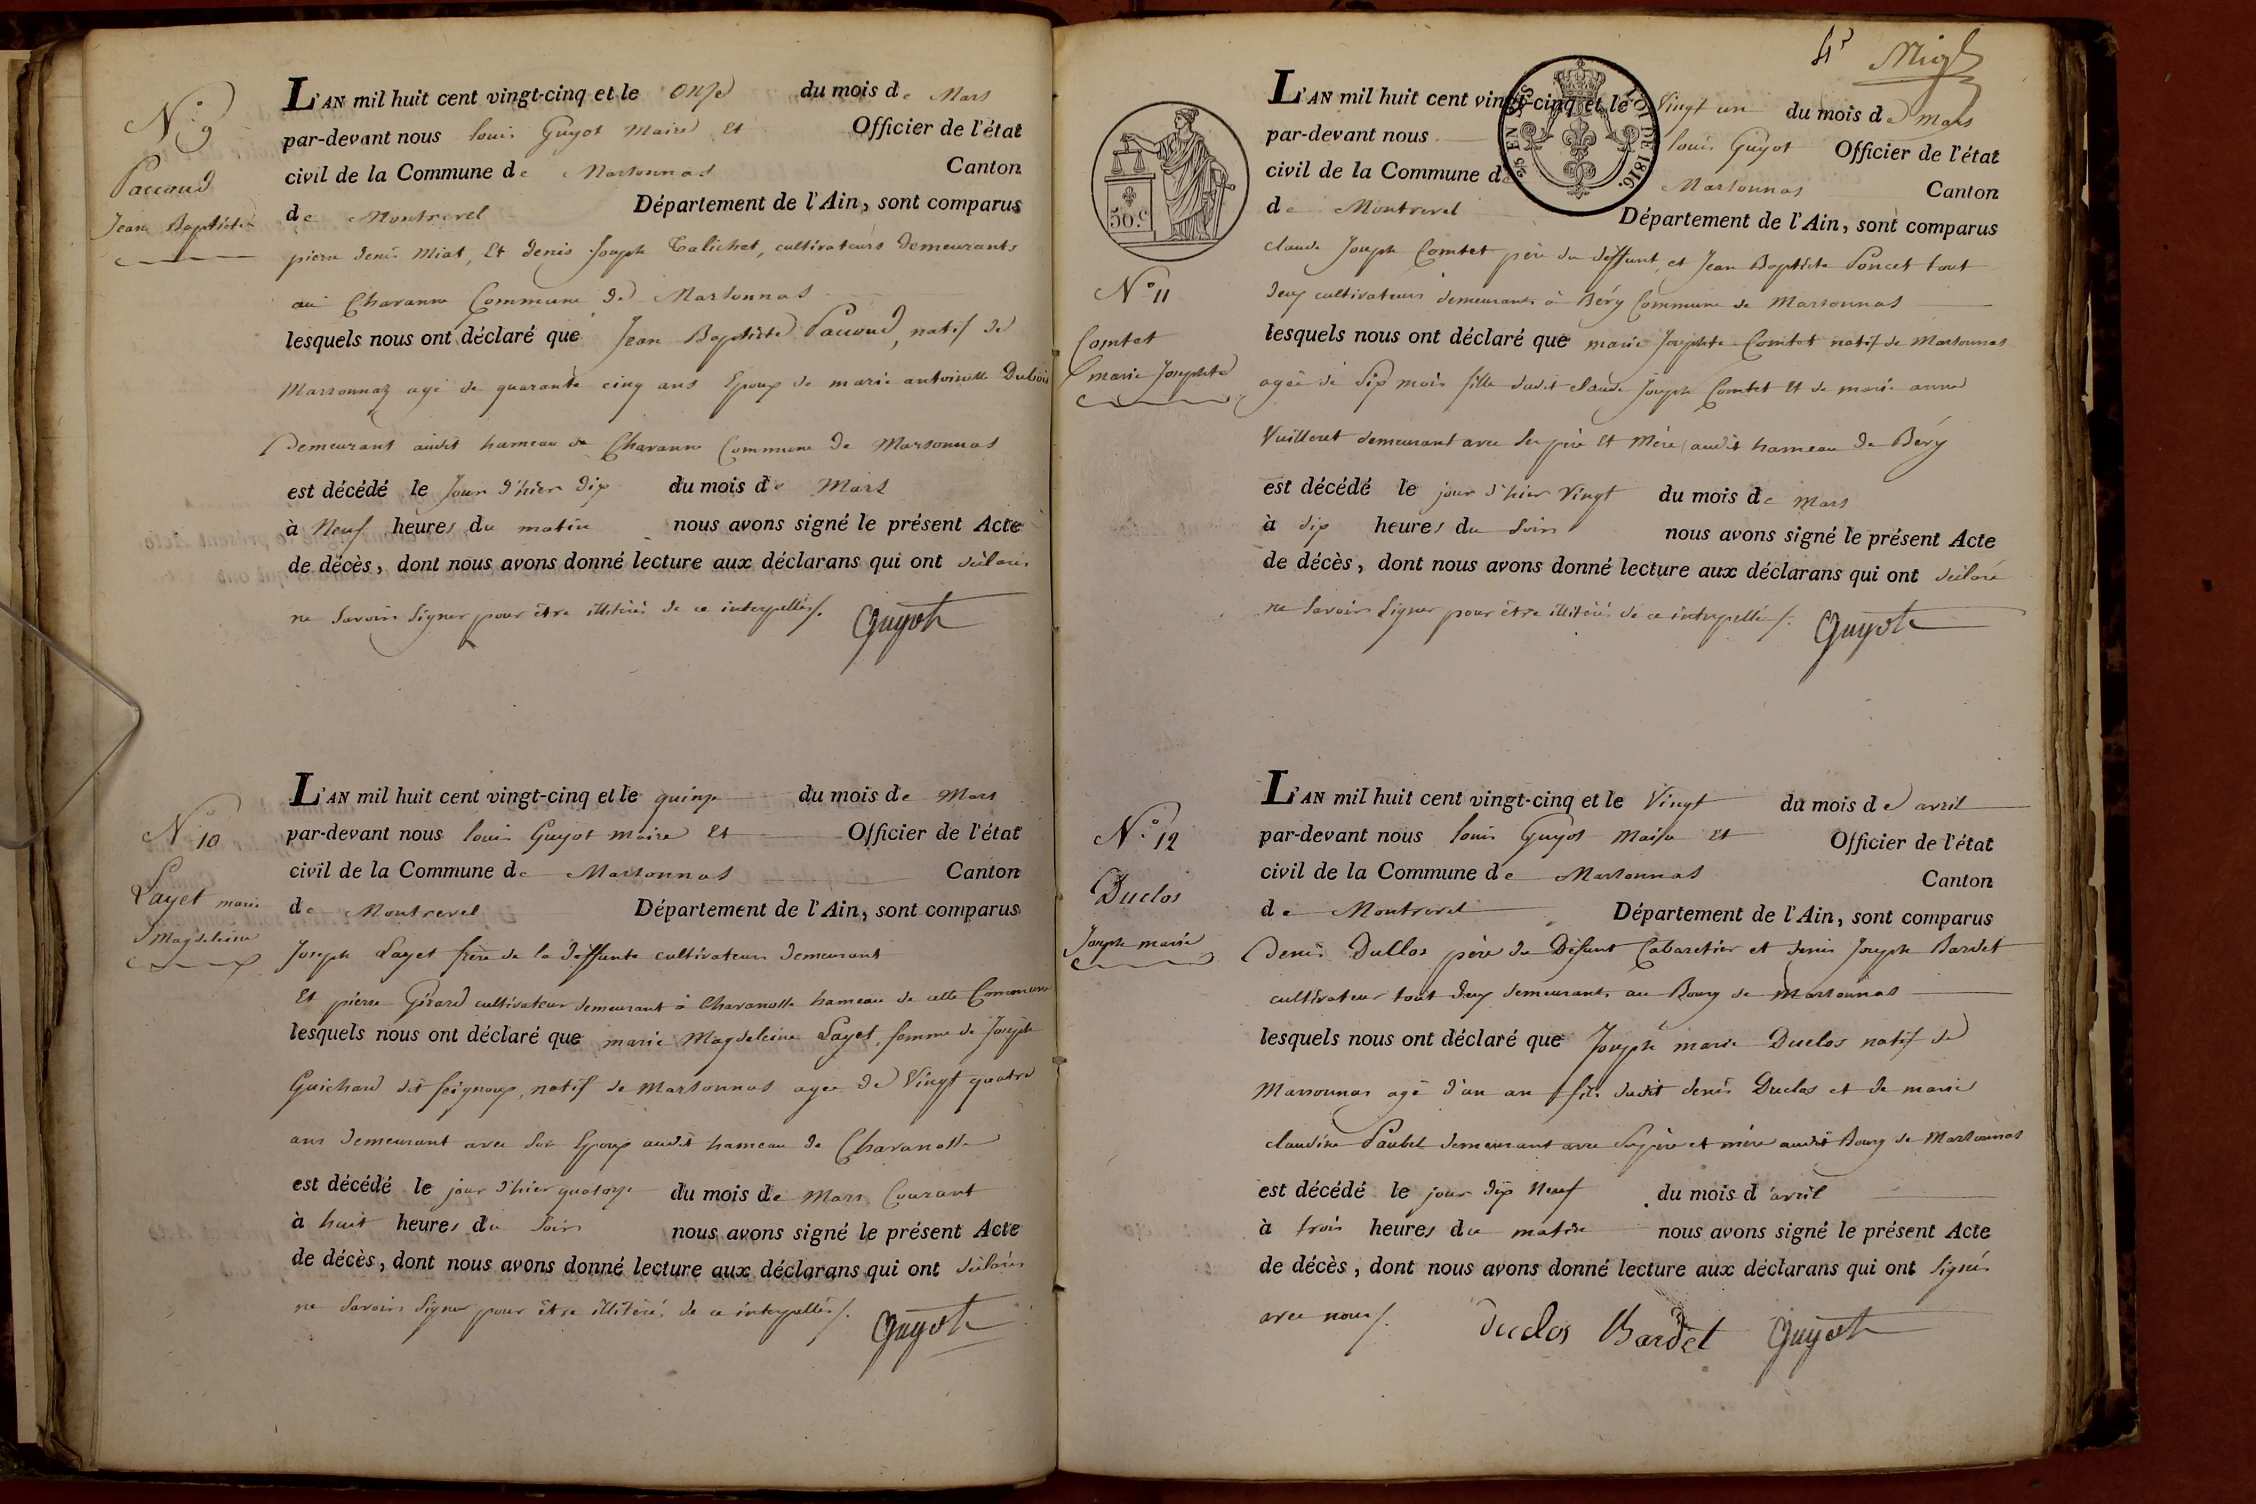 N.° 9
Paccoud
Jean Baptiste
L'AN mil huit cent vingt-cinq et le onze du mois de Mars
par-devant nous louis Guyot Maire Et Officier de l'état
civil de la Commune de Marsonnas Canton
de Montrevel Département de l'Ain, sont comparus
pierre denis Miat, Et denis Joseph Talichet, cultivateurs demeurants
au Charanne Commune de Marsonnas
lesquels nous ont déclaré que Jean Baptiste Paccoud, natif de
Marsonnaz agé de quarante cinq ans Epoux de marie antoinette Dubois
Demeurant audit hameau de Charanne Commune de Marsonnas
est décédé le Jour d'hier dix du mois de Mars
à Neuf heures du matin nous avons signé le présent Acte
de décès, dont nous avons donné lecture aux déclarans qui ont déclarés
ne Savoir Signer pour être illitérés de ce interpellés/.
Guyot
N.° 10
Layet marie
Magdeleine
L'AN mil huit cent vingt-cinq et le quinze du mois de Mars
par-devant nous louis Guyot maire Et Officier de l'état
civil de la Commune de Marsonnas Canton
de Montrevel Département de l'Ain, sont comparus
Joseph Layet frère de la deffunte cultivateur demeurant
Et pierre Girard cultivateur demeurant à Charanolle hameau de cette Commune
lesquels nous ont déclaré que marie Magdeleine Layet, femme de Joseph
Guichard dit foignoux, natif de Marsonnas agee de Vingt quatre
ans demeurant avec Son Epoux audit hameau de Charanolle
est décédé le jour d'hier quatorze du mois de Mars Courant
à huit heures du Soir nous avons signé le présent Acte
de décès, dont nous avons donné lecture aux déclarans qui ont déclarés
ne Savoir Signer pour être illitérés de ce interpellés/.
Guyot
4.e
50.c
25 EN SUS
LOI DE 1816.
N.° 11
Comtet
marie Josephte
L'AN mil huit cent vingt-cinq et le Vingt un du mois de mars
par-devant nous louis Guyot Officier de l'état
civil de la Commune de Marsonnas Canton
de Montrevel Département de l'Ain, sont comparus
claude Joseph Comtet père du deffunt, et Jean Baptiste Poncet tout
deux cultivateurs demeurants à Béry Commune de Marsonnas
lesquels nous ont déclaré que marie Josephte Comtet natif de Marsonnas
agée de dix mois fille dudit claude Joseph Comtet Et de marie anne
Vuilleret demeurant avec Ses père Et Mère audit hameau de Béry
est décédé le jour d'hier Vingt du mois de Mars
à dix heures du Soir nous avons signé le présent Acte
de décès, dont nous avons donné lecture aux déclarans qui ont déclaré
ne Savoir Signer pour être illitérés de ce interpellés/.
Guyot
N.° 12
Duclos
Joseph marie
L'AN mil huit cent vingt-cinq et le Vingt du mois de avril
par-devant nous louis Guyot Maire Et Officier de l'état
civil de la Commune de Marsonnas Canton
de Montrevel Département de l'Ain, sont comparus
Denis Duclos père du Défunt Cabaretier et denis Joseph Bardet
cultivateur tout deux demeurants au Bourg de Marsonnas
lesquels nous ont déclaré que Joseph marie Duclos natif de
Marsonnas agé d'un an fils dudit denis Duclos et de marie
claudine Paubel demeurant avec Ses père et mère audit Bourg de Marsonnas
est décédé le jour dix Neuf du mois d'avril
à trois heures du matin nous avons signé le présent Acte
de décès, dont nous avons donné lecture aux déclarans qui ont signés
avec nous/.
Duclos Bardet Guyot